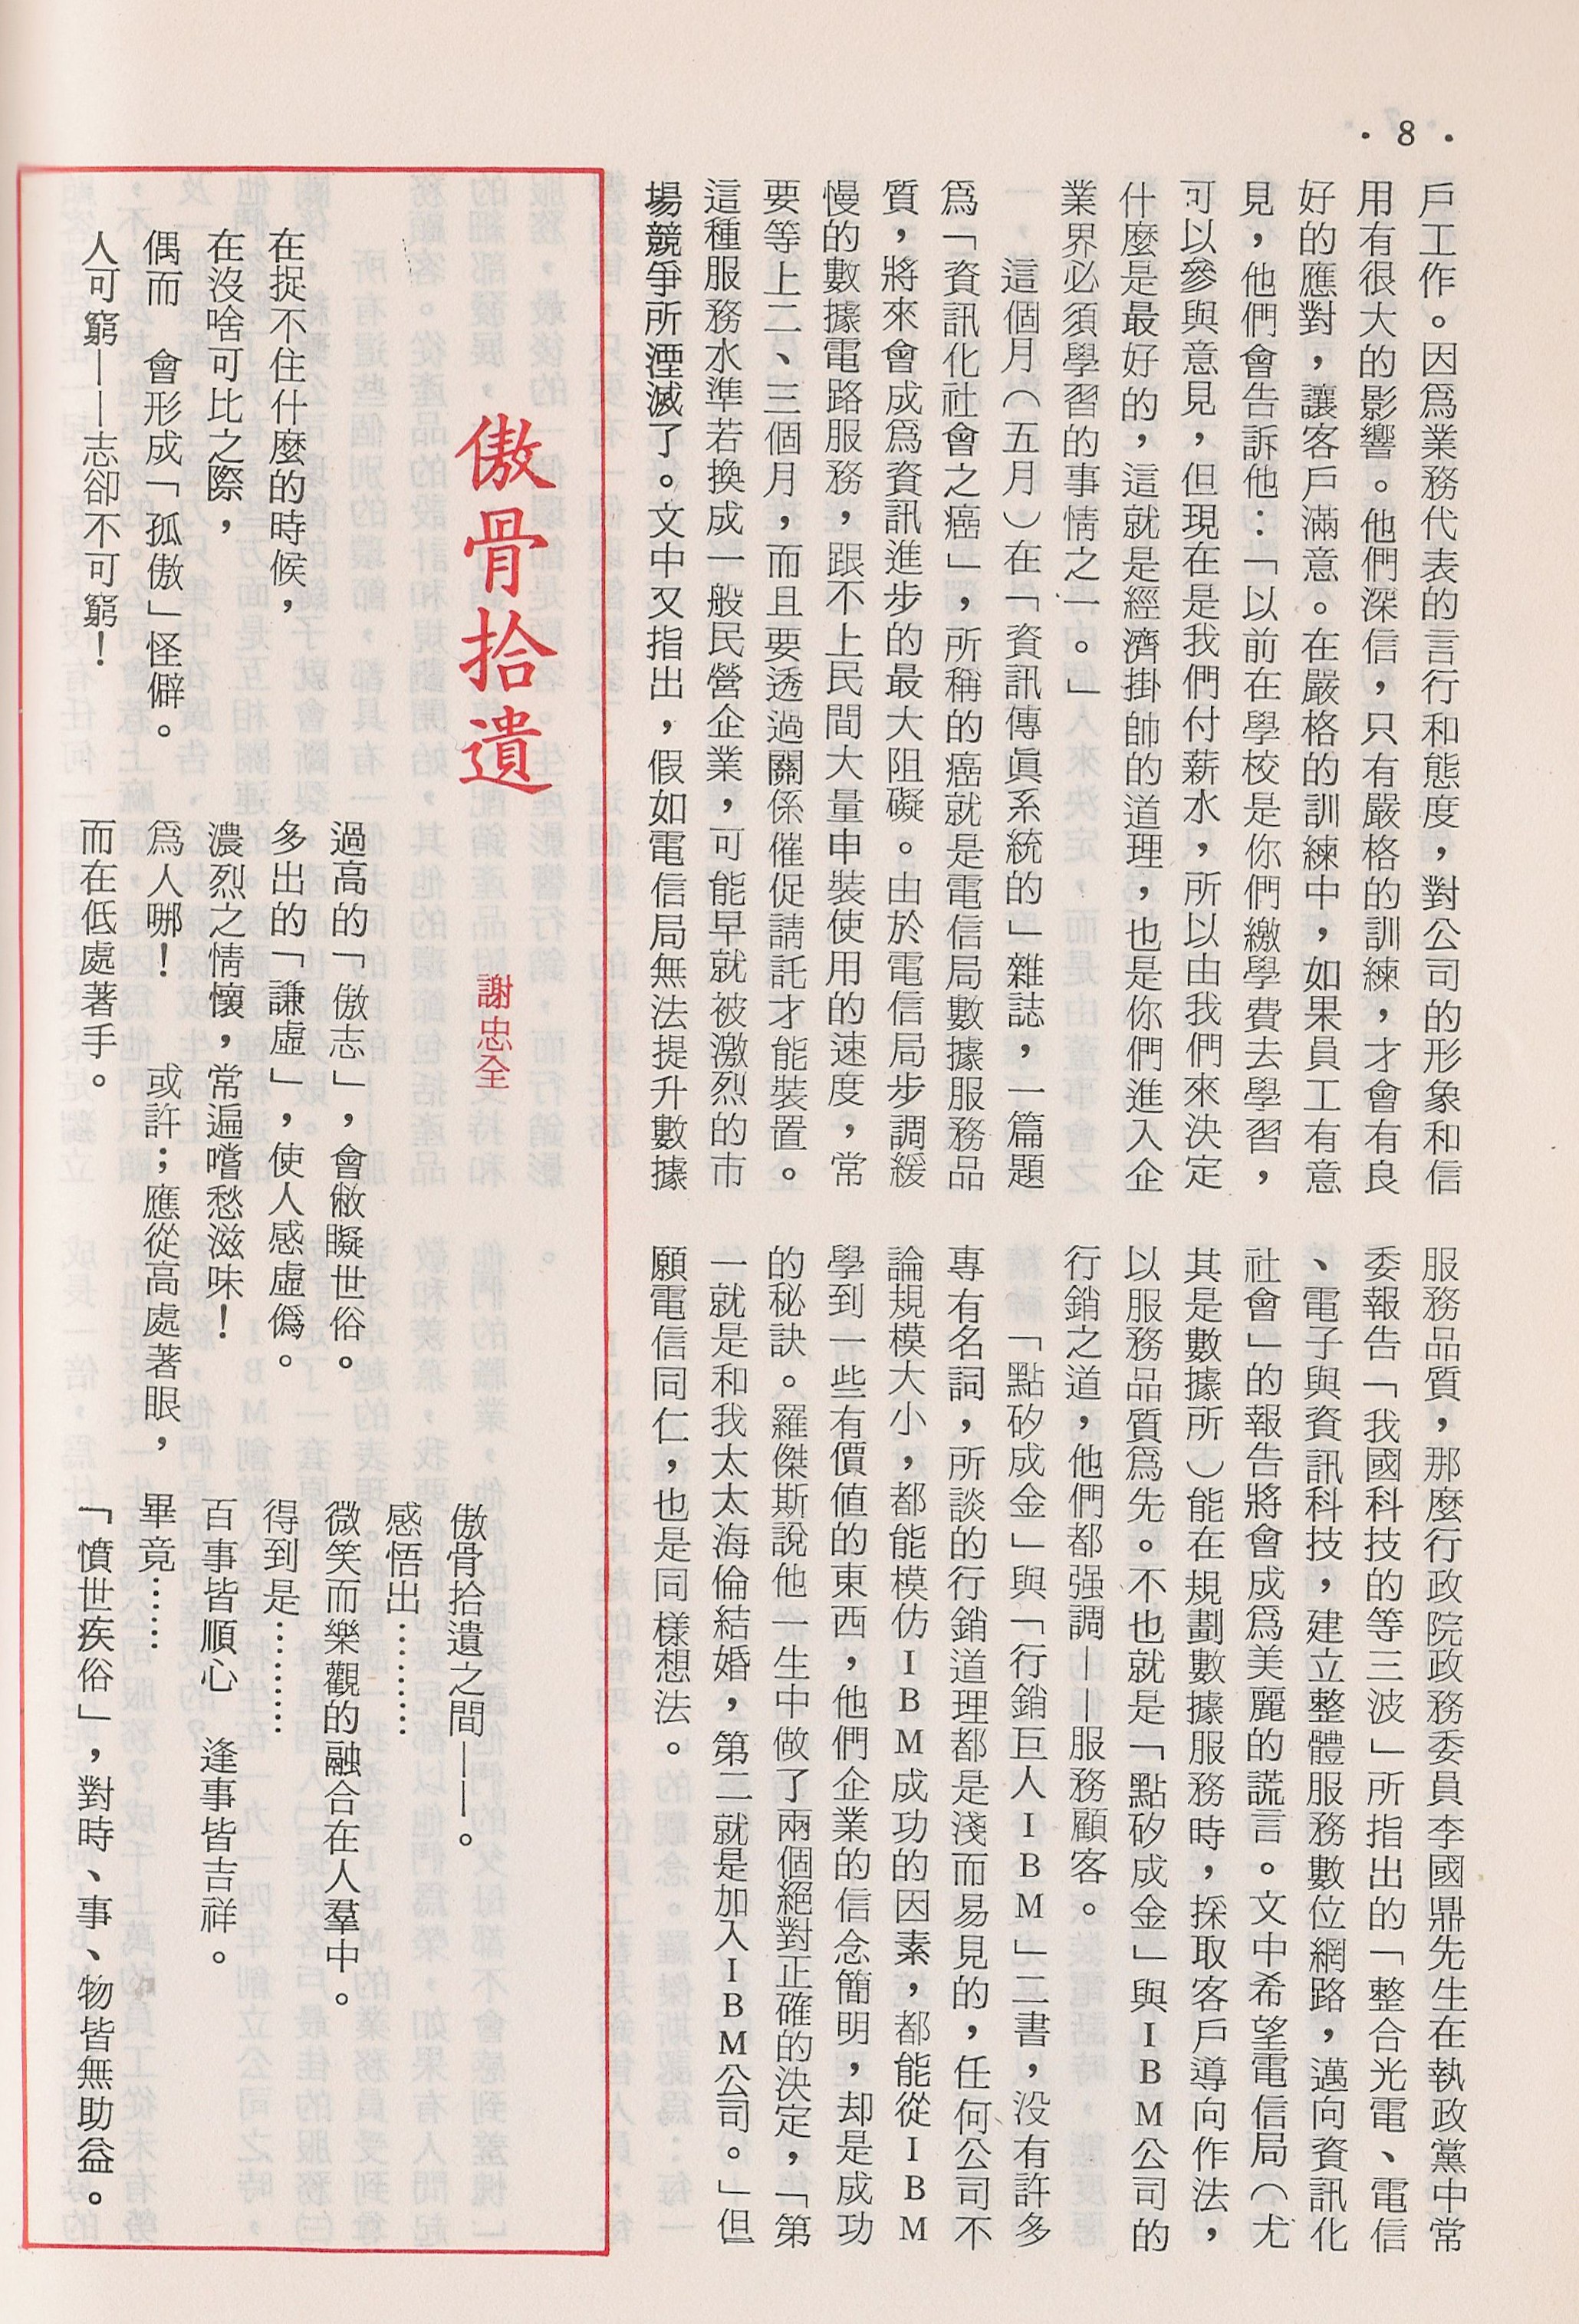 ・8・
戶工作。因爲業務代表的言行和態度，對公司的形象和信
用有很大的影響。他們深信，只有嚴格的訓練，才會有良
好的應對，讓客戶滿意。在嚴格的訓練中，如果員工有意
見，他們會告訴他：「以前在學校是你們繳學費去學習，
可以參與意見，但現在是我們付薪水，所以由我們來決定
什麼是最好的，這就是經濟掛帥的道理，也是你們進入企
業界必須學習的事情之一。」
這個月（五月）在「資訊傳眞系統的」雜誌，一篇題
爲「資訊化社會之癌」，所稱的癌就是電信局數據服務品
質，將來會成爲資訊進步的最大阻礙。由於電信局步調緩
慢的數據電路服務，跟不上民間大量申裝使用的速度，常
要等上二、三個月，而且要透過關係催促請託才能裝置。
這種服務水準若換成一般民營企業，可能早就被激烈的市
場競爭所湮滅了。文中又指出，假如電信局無法提升數據
服務品質，那麼行政院政務委員李國鼎先生在執政黨中常
委報告「我國科技的等三波」所指出的「整合光電、電信
、電子與資訊科技，建立整體服務數位網路，邁向資訊化
社會」的報告將會成爲美麗的謊言。文中希望電信局（尤
其是數據所）能在規劃數據服務時，採取客戶導向作法，
以服務品質爲先。不也就是「點矽成金」與IBM公司的
行銷之道，他們都强調——服務顧客。
「點矽成金」與「行銷巨人IBM」二書，没有許多
專有名詞，所談的行銷道理都是淺而易見的，任何公司不
論規模大小，都能模仿IBM成功的因素，都能從IBM
學到一些有價値的東西，他們企業的信念簡明，却是成功
的秘訣。羅傑斯說他一生中做了兩個絕對正確的決定，「第
一就是和我太太海倫結婚，第二就是加入IBM公司。」但
願電信同仁，也是同樣想法。
傲骨拾遺
謝忠全
在捉不住什麼的時候，
在沒啥可比之際，
偶而　會形成「孤傲」怪僻。
人可窮——志卻不可窮！
過高的「傲志」，會敝矇世俗。
多出的「謙虛」，使人感虛僞。
濃烈之情懷，常遍嚐愁滋味！
爲人哪！　　或許；應從高處著眼，
而在低處著手。
傲骨拾遺之間——。
感悟出………
微笑而樂觀的融合在人羣中。
得到是………
百事皆順心　逢事皆吉祥。
畢竟……
「憤世疾俗」，對時、事、物皆無助益。